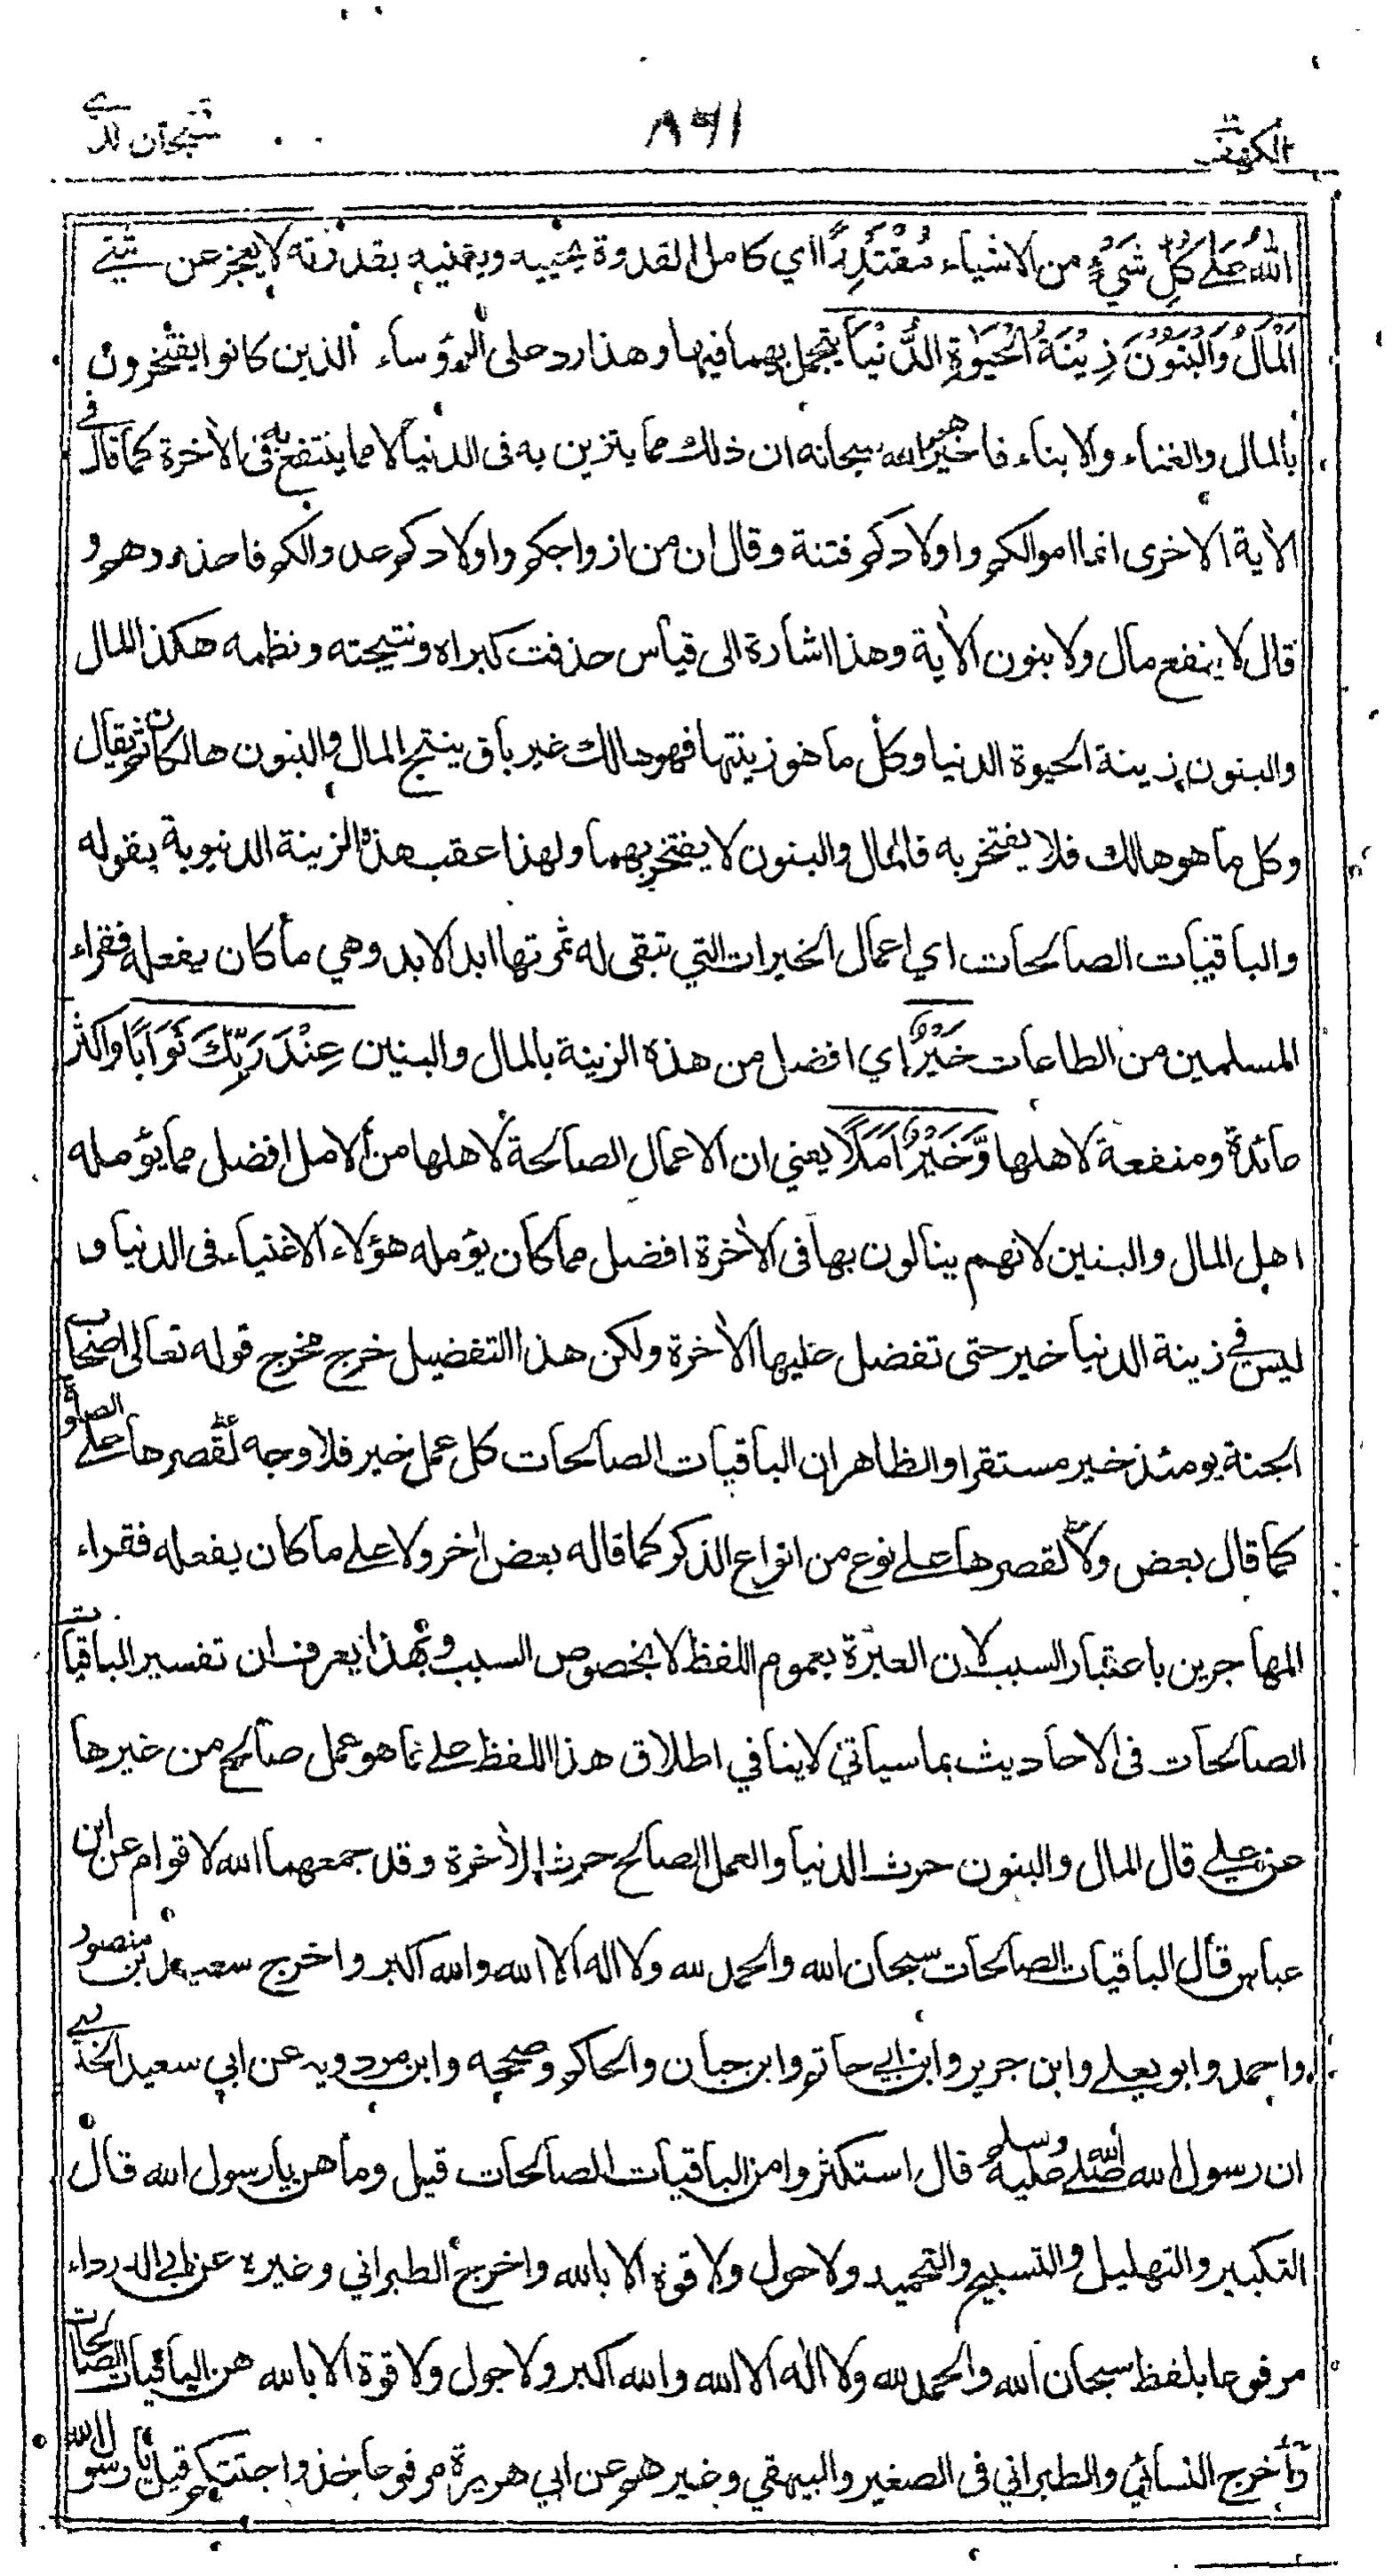 الكهف
٨٤١
سبحان الذي
اللهُ عَلى كُلِّ شَيْءٍ من الاشياء مُقْتَدِرًا اي كامل القدرة يحييه ويفنيه بقدرته لا يعجز عن شيئ
اَلْمَالُ وَالْبَنُوْنَ زِيْنَةُ الْحَيٰوةِ الدُّنْيَا يتجمل بهما فيها وهذا رد على الرؤساء الذين كانوا يفتخرون
بالمال والغناء والابناء فاخبرهم الله سبحانه ان ذلك مما يتزين به فى الدنيا لا مما ينتفع به فى الاٰخرة كما قال فى
الاٰية الاخرى انما اموالكم واولادكم فتنة وقال ان من ازواجكم واولادكم عدوا لكم فاحذروهم و
قال لا ينفع مال ولا بنون الاٰية وهذا اشارة الى قياس حذفت كبراه ونتيجته ونظمه هكذا المال
والبنون زينة الحيوة الدنيا وكل ما هو زينتها فهو هالك غير باق ينتج المال والبنون هالكان ثم يقال
وكل ما هو هالك فلا يفتخر به فالمال والبنون لا يفتخر بهما ولهذا عقب هذه الزينة الدنيوية بقوله
والباقيات الصالحات اي اعمال الخيرات التي تبقى له ثمرتها ابد الابد وهي ما كان يفعله فقراء
المسلمين من الطاعات خَيْرٌ اي افضل من هذه الزينة بالمال والبنين عِنْدَ رَبِّكَ ثَوَابًا واكثر
عائدة ومنفعة لاهلها وَّخَيْرٌ اَمَلًا يعني ان الاعمال الصالحة لاهلها من الامل افضل مما يؤمله
اهل المال والبنين لانهم ينالون بها فى الاٰخرة افضل مما كان يؤمله هؤلاء الاغنياء فى الدنيا و
ليس في زينة الدنيا خير حتى تفضل عليها الاٰخرة ولكن هذا التفضيل خرج مخرج قوله تعالى اصحاب
الجنة يومئذ خير مستقرا والظاهر ان الباقيات الصالحات كل عمل خير فلا وجه لقصرها على الصلوة
كما قال بعض ولا لقصرها على نوع من انواع الذكر كما قاله بعض اٰخر ولا على ما كان يفعله فقراء
المهاجرين باعتبار السبب لان العبرة بعموم اللفظ لا بخصوص السبب وبهذا يعرف ان تفسير الباقيات
الصالحات فى الاحاديث بما سياتي لا ينافي اطلاق هذا اللفظ على ما هو عمل صالح من غيرها
عن علي قال المال والبنون حرث الدنيا والعمل الصالح حرث الاٰخرة وقد جمعهما الله لاقوام عن ابن
عباس قال الباقيات الصالحات سبحان الله والحمد لله ولا اله الا الله والله اكبر واخرج سعيد بن منصور
واحمد وابو يعلى وابن جرير وابن ابي حاتم وابن حبان والحاكم وصححه وابن مردويه عن ابي سعيد الخدري
ان رسول الله صلى الله عليه وسلم قال استكثروا من الباقيات الصالحات قيل وما هن يا رسول الله قال
التكبير والتهليل والتسبيح والتحميد ولا حول ولا قوة الا بالله واخرج الطبراني وغيره عن ابي الدرداء
مرفوعا بلفظ سبحان الله والحمد لله ولا اله الا الله والله اكبر ولا حول ولا قوة الا بالله هن الباقيات الصالحات
واخرج النسائي والطبراني فى الصغير والبيهقي وغيرهم عن ابي هريرة مرفوعا خذوا جنتكم قيل يا رسول الله